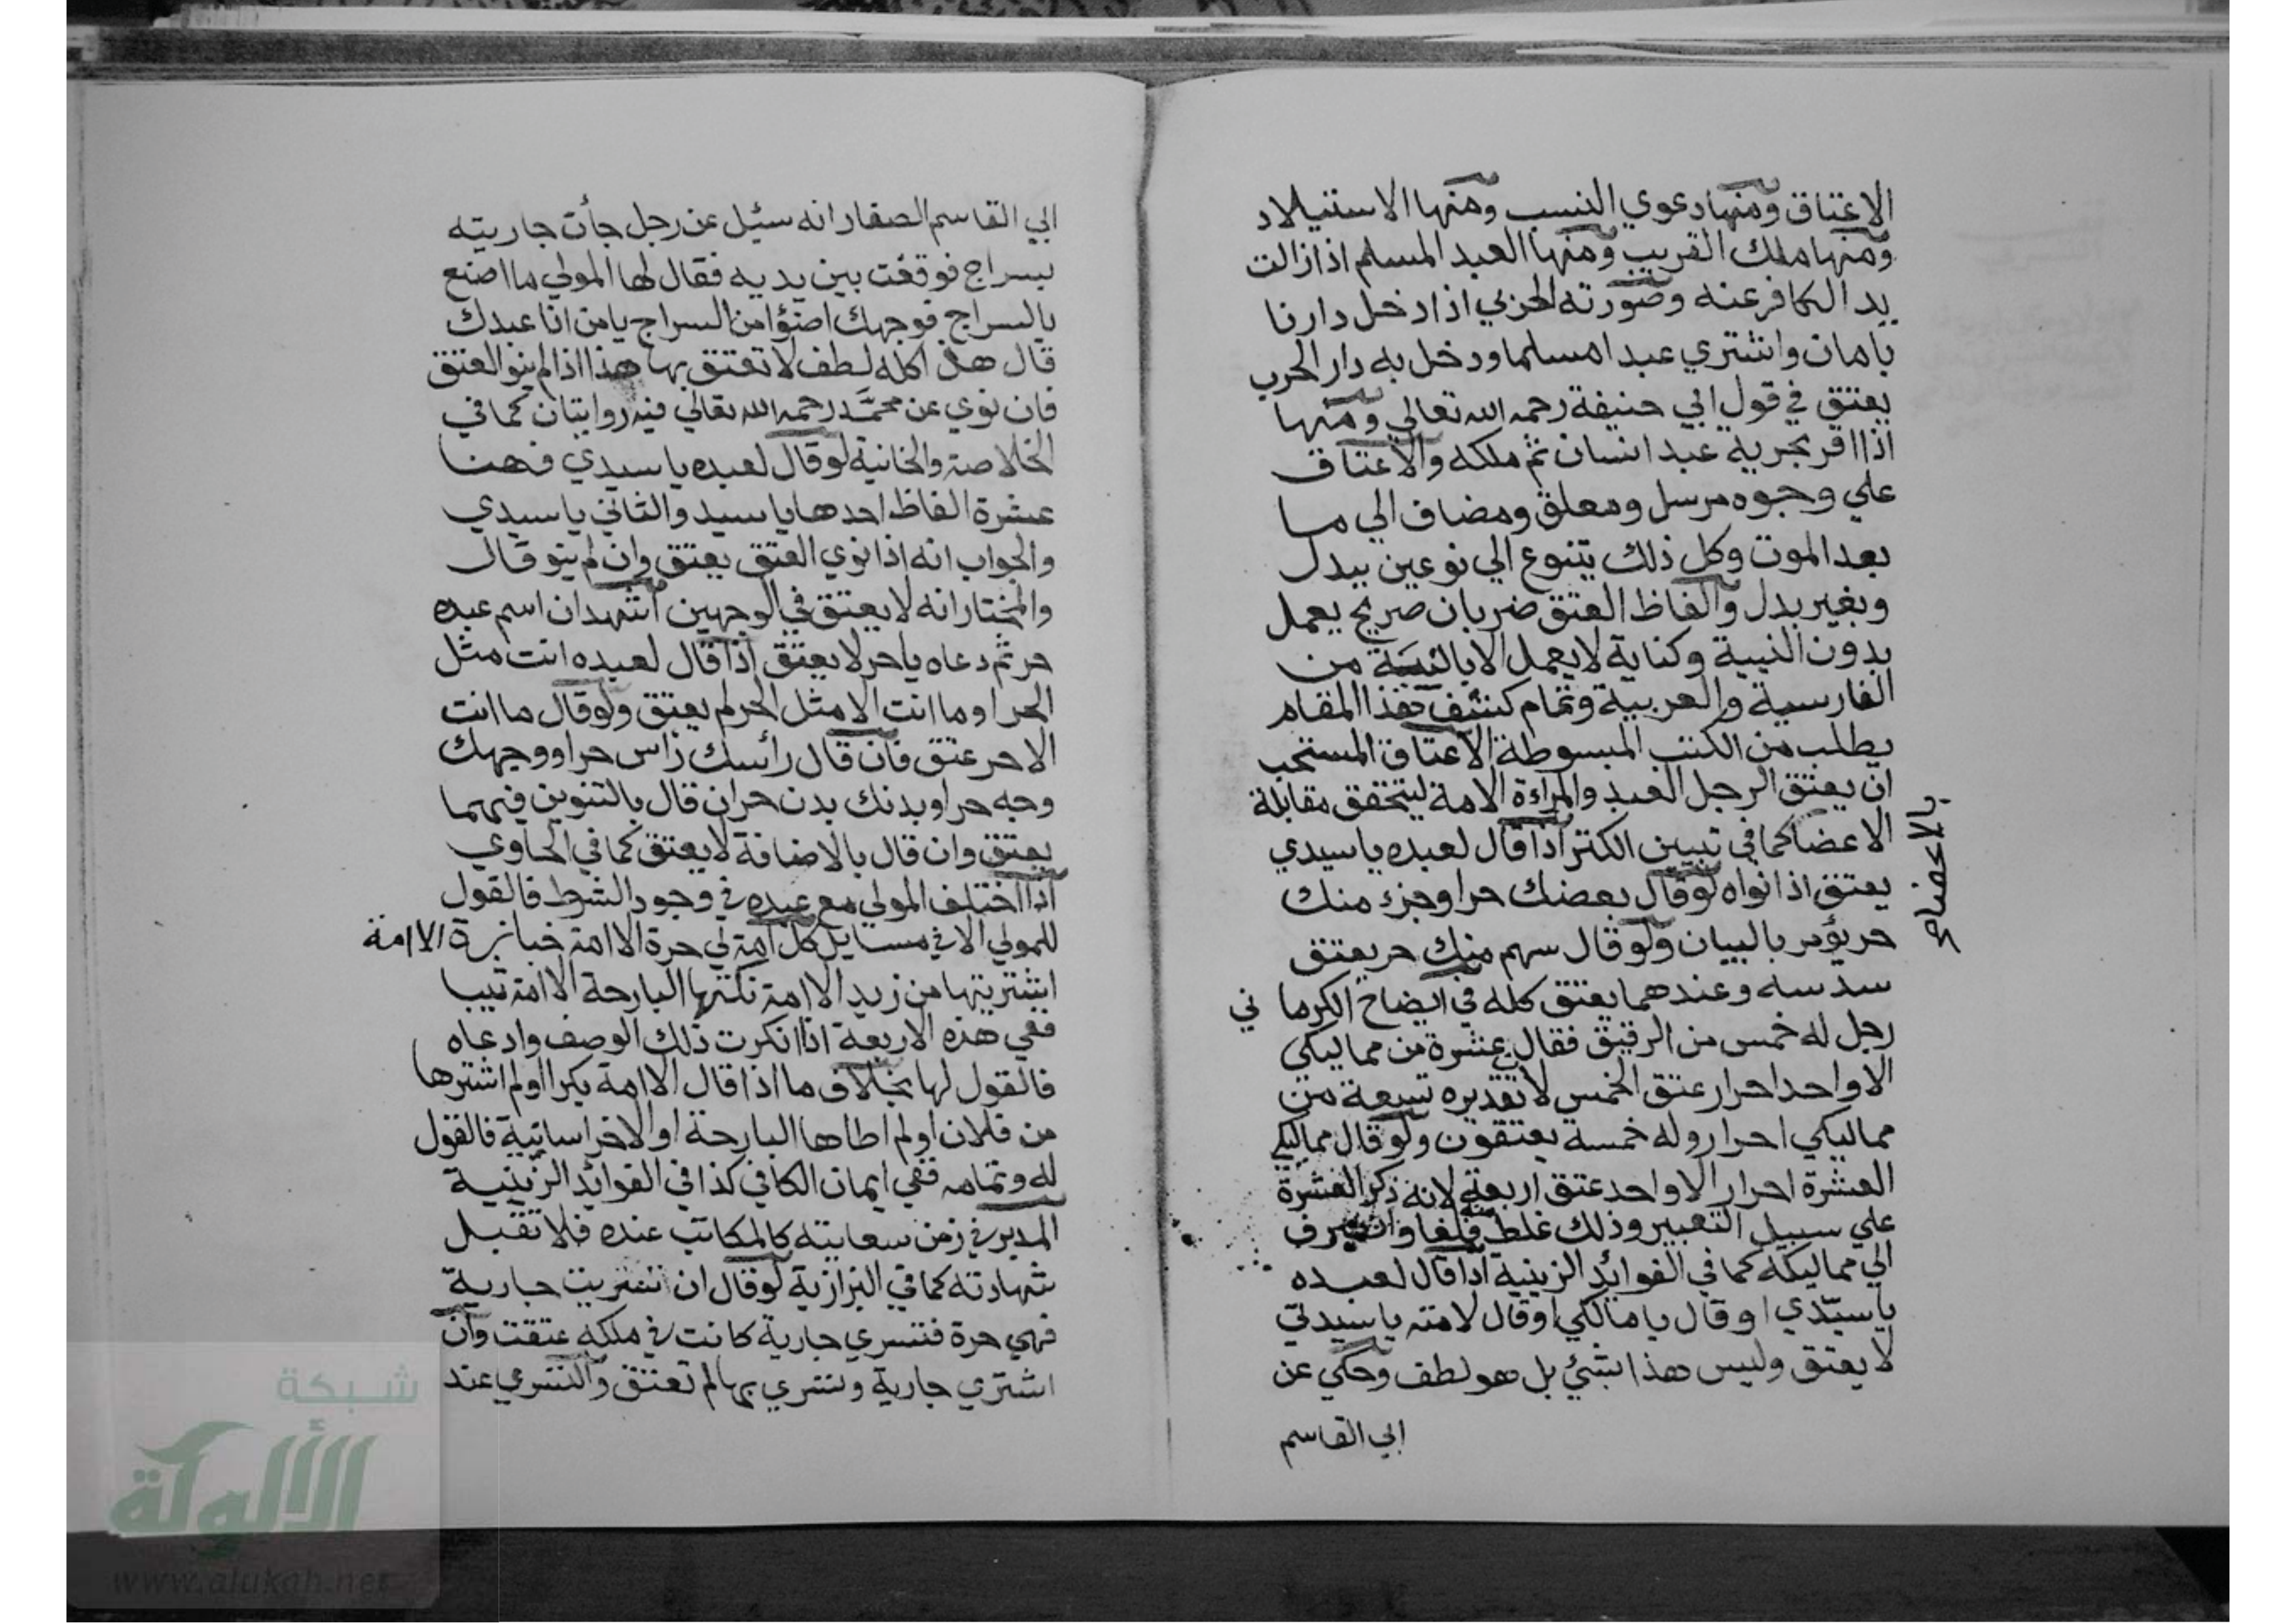 الاعتاق ومنها دعوي النسب ومنها الاستيلاد
ومنها ملك القريب ومنها العبد المسلم اذا زالت
يد الكافر عنه وصورته الحربي اذا دخل دارنا
بامان واشتري عبدا مسلما ودخل به دار الحرب
يعتق في قول ابي حنيفة رحمه الله تعالي ومنها
اذا اقر بحرية عبد انسان ثم ملكه والاعتاق
علي وجوه مرسل ومعلق ومضاف الي ما
بعد الموت وكل ذلك يتنوع الي نوعين ببدل
وبغير بدل والفاظ العتق ضربان صريح يعمل
بدون النية وكناية لا يعمل الا بالنية من
الفارسية والعربية وتمام كشف هذا المقام
يطلب من الكتب المبسوطة الاعتاق المستحب
ان يعتق الرجل العبد والمراءة الامة ليتحقق مقابلة
الاعضا كما في تبيين الكنز اذا قال لعبده يا سيدي
بالاعضاء
يعتق اذا نواه لو قال بعضك حر او جزء منك
حر يؤمر بالبيان ولو قال سهم منك حر يعتق
سدسه وعندهما يعتق كله في ايضاح الكرماني
رجل له خمس من الرقيق فقال عشرة من مماليكي
الا واحد احرار عتق الخمس لا تقديره تسعة من
مماليكي احرار وله خمسة يعتقون ولو قال مماليكي
العشرة احرار الا واحد عتق اربعة لانه ذكر العشرة
علي سبيل التعبير وذلك غلط فلغا وانصرف
الي مماليكه كما في الفوائد الزينية اذا قال لعبده
يا سيدي او قال يا مالكي او قال لامته يا سيدتي
لا يعتق وليس هذا بشيء بل هو لطف وحكي عن
ابي القاسم
ابي القاسم الصفار انه سئيل عن رجل جأت جاريته
بسراج فوقفت بين يديه فقال لها المولي ما اصنع
بالسراج فوجهك اضؤا من السراج يا من انا عبدك
قال هذا كله لطف لا تعتق بها هذا اذا لم ينو العتق
فان نوي عن محمد رحمه الله تعالي فيه روايتان كما في
الخلاصة والخانية لو قال لعبده يا سيدي فهنا
عشرة الفاظ احدها يا سيد والثاني يا سيدي
والجواب انه اذا نوي العتق يعتق وان لم ينو قال
والمختار انه لا يعتق في الوجهين اشهد ان اسم عبده
حر ثم دعاه يا حر لا يعتق اذا قال لعبده انت مثل
الحر او ما انت الا مثل الحر لم يعتق ولو قال ما انت
الا حر عتق فان قال رأسك رأس حر او وجهك
وجه حر او بدنك بدن حر ان قال بالتنوين فيهما
يعتق وان قال بالاضافة لا يعتق كما في الحاوي
اذا اختلف المولي مع عبده في وجود الشرط فالقول
للمولي الا في مسايل كل امة لي حرة الا امة خبازة الا امة
اشتريتها من زيد الا امة نكتها البارحة الا امة ثيبا
ففي هذه الاربعة اذا انكرت ذلك الوصف وادعاه
فالقول لها بخلاف ما اذا قال الا امة بكرا او لم اشترها
من فلان او لم اطاها البارحة او الا خراسانية فالقول
له وتمامه ففي ايمان الكافي كذا في الفوائد الزينية
المدبر في زمن سعايته كالمكاتب عنده فلا تقبل
شهادته كما في البزازية لو قال ان تسريت جارية
فهي حرة فتسري جارية كانت في ملكه عتقت وان
اشتري جارية وتسري بها لم تعتق والتسري عند
شبكة
الألوكة
www.alukah.net